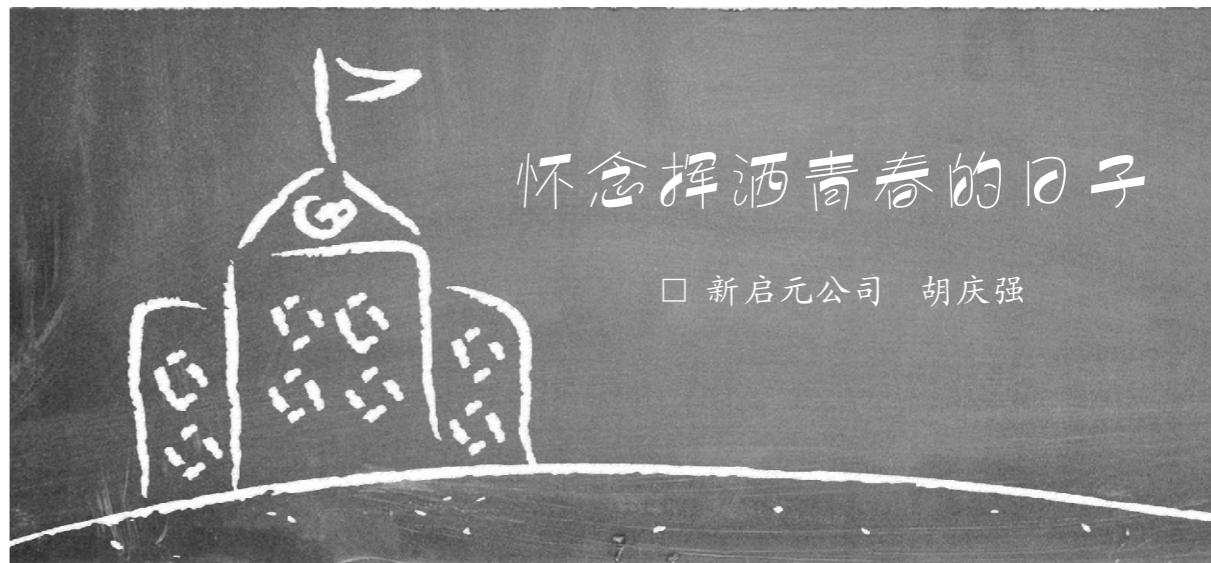 怀念挥洒青春的日子
□ 新启元公司　胡庆强